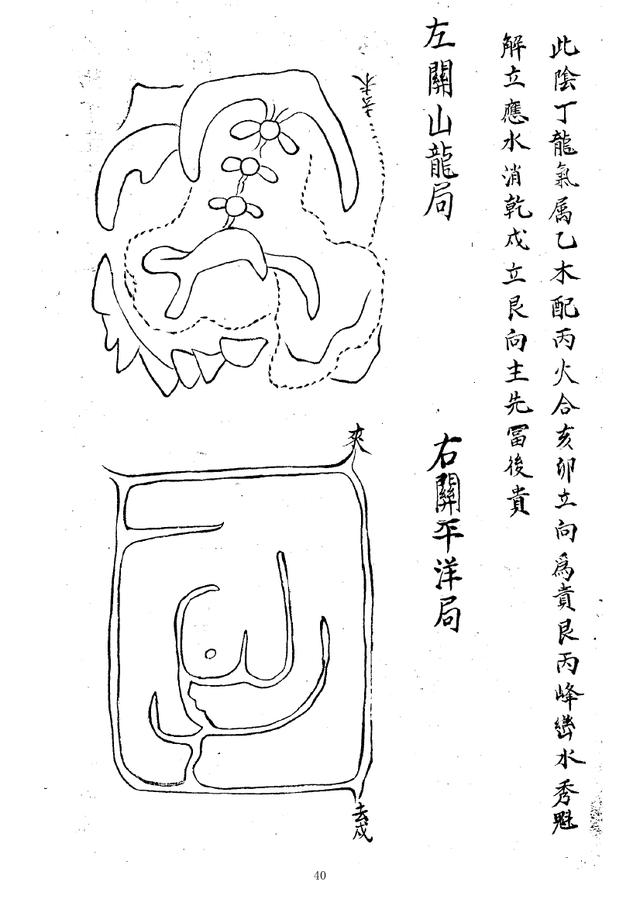 此陰丁龍氣属乙木配丙火合亥卯立向爲貴艮丙峰巒水秀魁
解立應水消乾戌立艮向主先冨後貴
左關山龍局
去水
右關平洋局
來
去戌
40